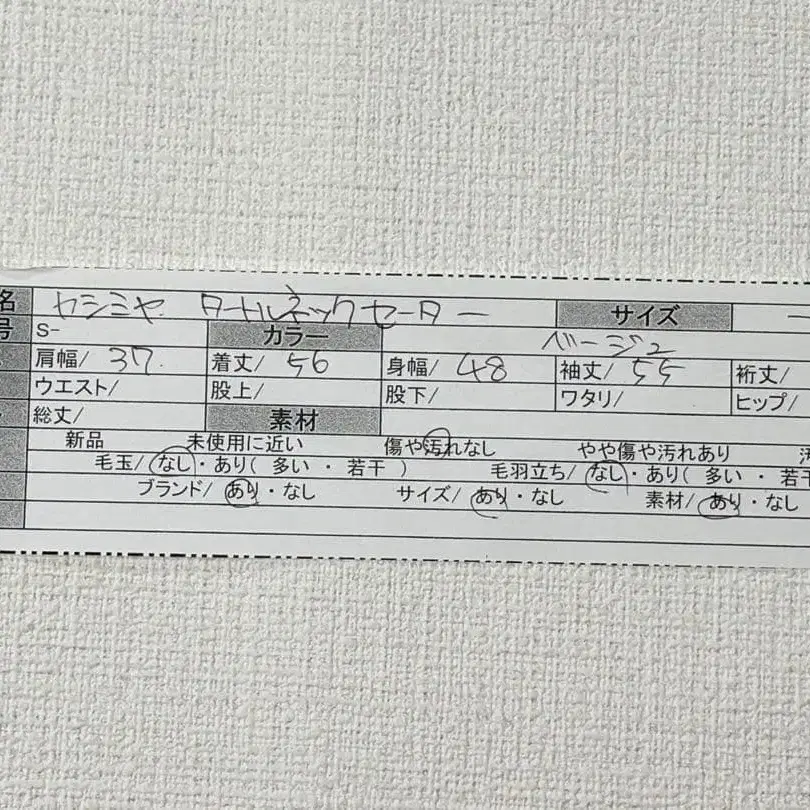 名 カシミヤ タートルネックセーター サイズ
号 S- カラー ベージュ
肩幅/ 37 着丈/ 56 身幅/ 48 袖丈/ 55 裄丈/
ウエスト/ 股上/ 股下/ ワタリ/ ヒップ/
総丈/ 素材
新品 未使用に近い 傷や汚れなし やや傷や汚れあり 汚
毛玉/ なし・あり( 多い ・ 若干 ) 毛羽立ち/ なし・あり( 多い ・ 若干
ブランド/ あり・なし サイズ/ あり・なし 素材/ あり・なし